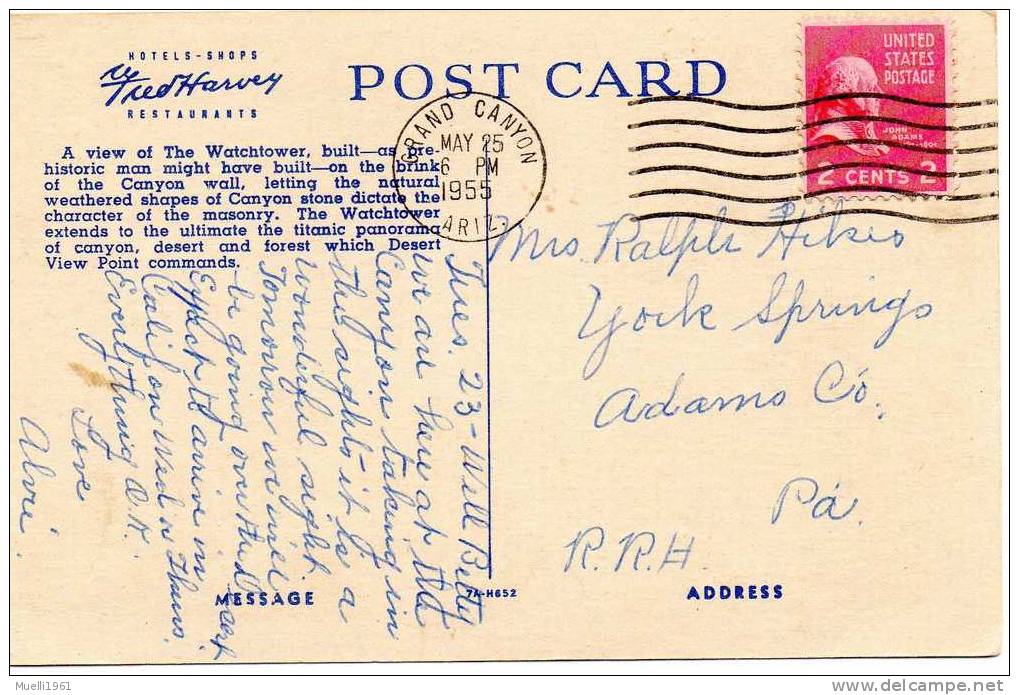 HOTELS-SHOPS
Fred Harvey
RESTAURANTS
POST CARD
UNITED
STATES
POSTAGE
JOHN
ADAMS
2 CENTS 2
GRAND CANYON
MAY 25
6 PM
1955
ARIZ.
A view of The Watchtower, built—as pre-
historic man might have built—on the brink
of the Canyon wall, letting the natural
weathered shapes of Canyon stone dictate the
character of the masonry. The Watchtower
extends to the ultimate the titanic panorama
of canyon, desert and forest which Desert
View Point commands.
Tues. 23 - Well Betty
we are here at the
Canyon taking in
the sights - it is a
wonderful sight
Tomorrow we will
be going over the
Expect to arrive in
Calif on Wed or Thurs.
Everything O.K.
Love
Alvie.
Mrs. Ralph Hikes
York Springs
Adams Co.
Pa.
R.R.H
MESSAGE
7A-H652
ADDRESS
Mueli1961
delcampe.net